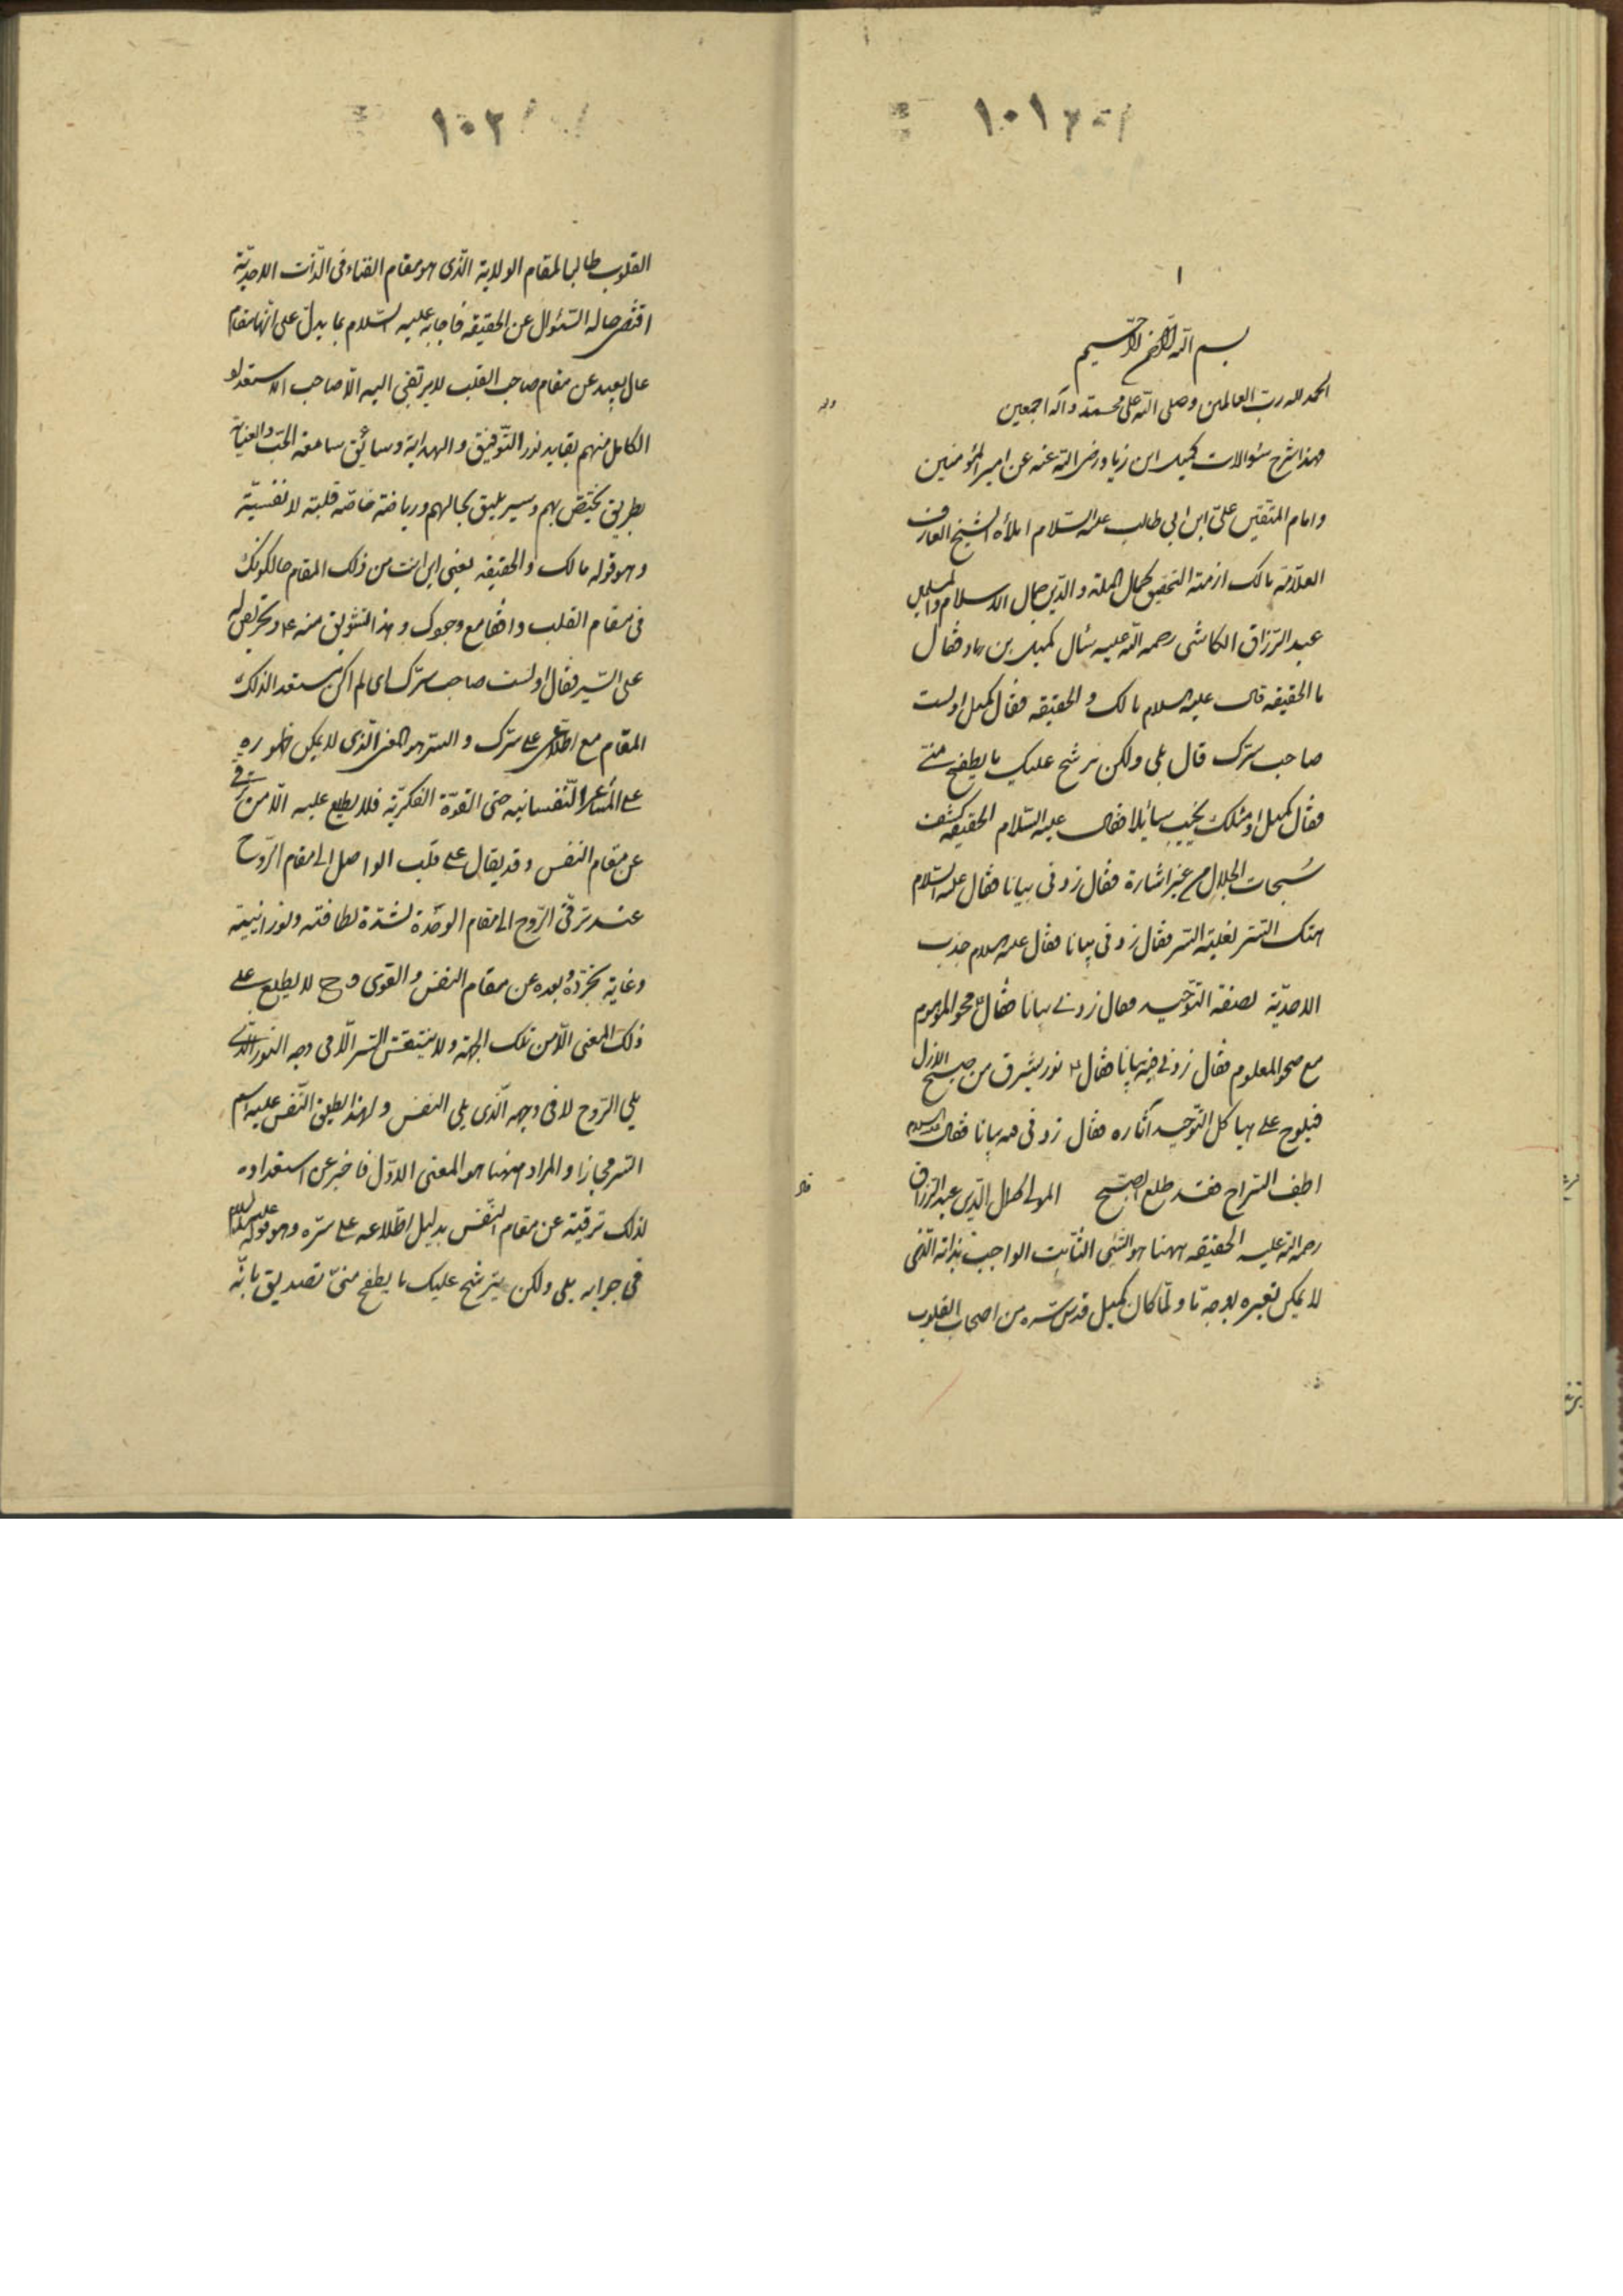 ١٠١
١
بسم الله الرحمن الرحيم
الحمد لله رب العالمين وصلى الله على محمد وآله اجمعين
فهذا شرح سئوالات كميل ابن زياد رضى الله عنه عن امير المؤمنين
وامام المتقين علىّ ابن ابي طالب عليه السّلام املأه الشيخ العارف
العلّامة مالك ازمّة التحقيق كمال الملة والدّين جمال الاسلام والمسلمين
عبد الرّزاق الكاشى رحمه الله عليه سئال كميل بن زياد فقال
ما الحقيقه قال عليه السلام مالك والحقيقه فقال كميل اولست
صاحب سرّك قال بلى ولكن يرشح عليك ما يطفح منّى
فقال كميل او مثلك يخيّب سائلا فقال عليه السّلام الحقيقه كشف
سُبحات الجلال من غير اشارة فقال زدنى بيانا فقال عليه السّلام
هتك الستر لغلبة السّر فقال زدنى بيانا فقال عليه السلام جذب
الاحديّة لصفة التوّحيد فقال زدنى بيانا فقال ع محو الموهوم
مع صحو المعلوم فقال زدنى فيه بيانا فقال ع نور يشرق من صبح الازل
فيلوح على هياكل التوّحيد آثاره فقال زدنى فيه بيانا فقال عليه السلام
اطف السّراج فقد طلع الصبّح المولى كمال الدّين عبد الرزاق
رحمة الله عليه الحقيقه ههنا هو الشّئى الثّابت الواجب بذاته الّذى
لا يمكن تغيره بوجه ما ولمّا كان كميل قدس سّره من اصحاب القلوب
١٠٢
القلوب طالبا لمقام الولاية الّذى هو مقام الفناء فى الذّات الاحديّة
اقتضى حاله السّئوال عن الحقيقه فاجابه عليه السّلام بما يدلّ على انّها مقام
عال بعيد عن مقام صاحب القلب لا يرتقى اليه الّا صاحب الاستعداد
الكامل منهم بقايد نور التّوفيق والهداية وسائق ساعقة الحبّ والعناية
بطريق يختصّ بهم وسير يليق بحالهم ورياضة خاصّة قلبيّة لا نفسيّة
وهو قوله مالك والحقيقه يعنى اين انت من ذلك المقام حالكونك
فى مقام القلب واقفا مع وجودك وهذا تشويق منه ع وتحريض له
على السّير فقال اولست صاحب سرّك اى الم اكن مستعدا لذلك
المقام مع اطلاعى على سرّك والسّر هو المعنى الّذى لا يمكن ظهوره
على المشاعر النّفسانيه حتى القوّة الفكريّة فلا يطلع عليه الّا من ترقّى
عن مقام النفس وقد يقال على قلب الواصل الى مقام الرّوح
عند ترقّى الرّوح الى مقام الوحدة لشدّة لطافته ونورانيته
وغاية تجرّده وبعده عن مقام النفس والقوى وح لا يطلع على
ذلك المعنى الّا من تلك الجهة ولا ينتقش السّر الّا فى وجه النّور الّذى
يلى الرّوح لا فى وجهه الّذى يلى النفس ولهذا يطلق النّفس عليه اسم
السّر مجازا والمراد ههنا هو المعنى الاوّل فاخبر عن استعداده
لذلك ترقيّه عن مقام النّفس بدليل اطّلاعه على سرّه وهو قوله عليه السلام
فى جوابه بلى ولكن يترشّح عليك ما يطفح منىّ تصديق بانّه